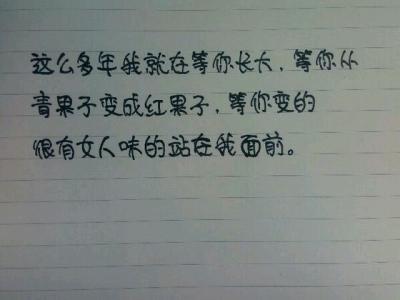 这么多年我就在等你长大，等你从
青果子变成红果子，等你变的
很有女人味的站在我面前。